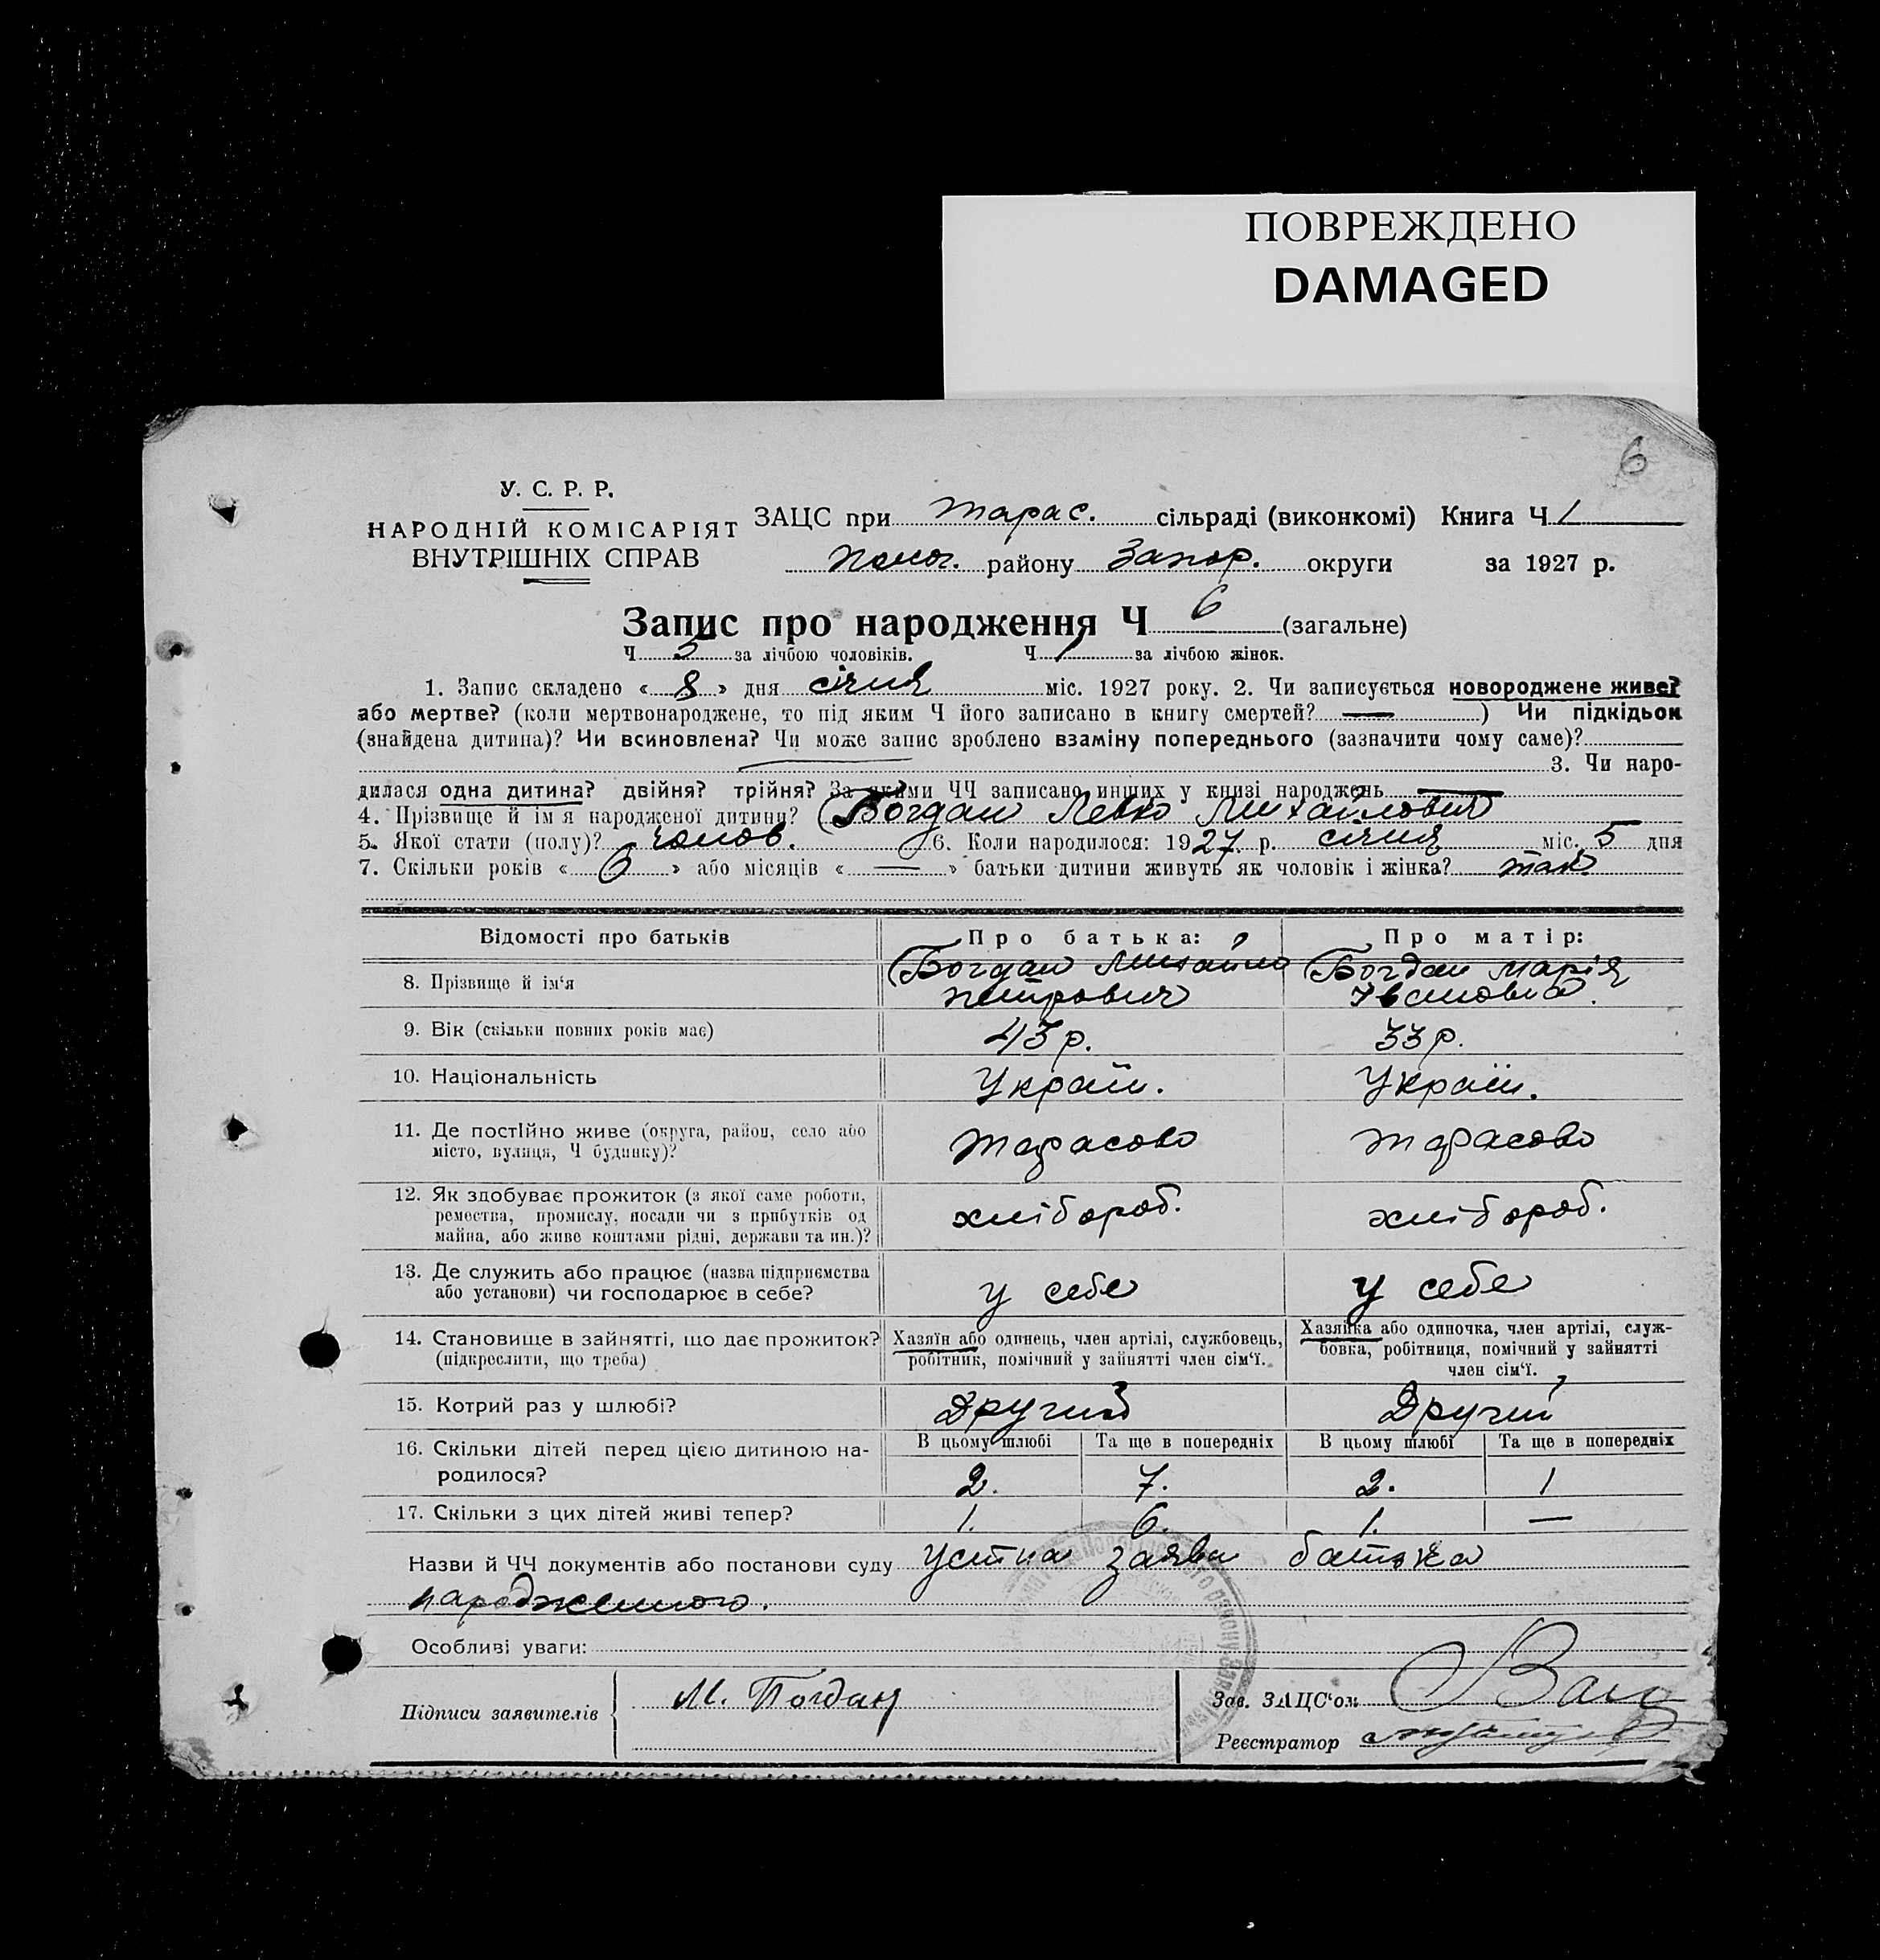 ПОВРЕЖДЕНО
DAMAGED
6
У. С. Р. Р.
НАРОДНІЙ КОМІСАРІЯТ
ВНУТРІШНІХ СПРАВ
ЗАЦС при Тарас. сільраді (виконкомі) Книга Ч 1
Полог. району Запор. округи за 1927 р.
Запис про народження Ч 6 (загальне)
Ч 5 за лічбою чоловіків. Ч 1 за лічбою жінок.
1. Запис складено « 8 » дня січня міс. 1927 року. 2. Чи записується новороджене живе?
або мертве? (коли мертвонароджене, то під яким Ч його записано в книгу смертей? —) Чи підкідьок
(знайдена дитина)? Чи всиновлена? Чи може запис зроблено взаміну попереднього (зазначити чому саме)?
3. Чи наро-
дилася одна дитина? двійня? трійня? За якими ЧЧ записано инших у книзі народжень —
4. Прізвище й ім'я народженої дитини? Богдан Левко Михайлович
5. Якої стати (полу)? чолов. 6. Коли народилося: 1927 р. січня міс. 5 дня
7. Скільки років « 6 » або місяців « — » батьки дитини живуть як чоловік і жінка? так
Відомості про батьків Про батька: Про матір:
8. Прізвище й ім'я Богдан Михайло Петрович Богдан Марія Івановна.
9. Вік (скільки повних років має) 43 р. 33 р.
10. Національність Україн. Україн.
11. Де постійно живе (округа, район, село або
місто, вулиця, Ч будинку)? Тарасово Тарасово
12. Як здобуває прожиток (з якої саме роботи,
ремества, промислу, посади чи з прибутків од
майна, або живе коштами рідні, держави та ин.)? хлібороб. хлібороб.
13. Де служить або працює (назва підприємства
або установи) чи господарює в себе? у себе у себе
14. Становище в зайнятті, що дає прожиток?
(підкреслити, що треба)
Хазяїн або одинець, член артілі, службовець,
робітник, помічний у зайнятті член сім'ї.
Хазяйка або одиночка, член артілі, служ-
бовка, робітниця, помічний у зайнятті
член сім'ї.
15. Котрий раз у шлюбі? Другий Другий
16. Скільки дітей перед цією дитиною на-
родилося?
В цьому шлюбі Та ще в попередніх В цьому шлюбі Та ще в попередніх
2. 7. 2. 1
17. Скільки з цих дітей живі тепер? 1. 6. 1. —
Назви й ЧЧ документів або постанови суду Устна заява батька
народженного.
Особливі уваги:
Підписи заявителів М. Богдан
Зав. ЗАЦС'ом
Реєстратор